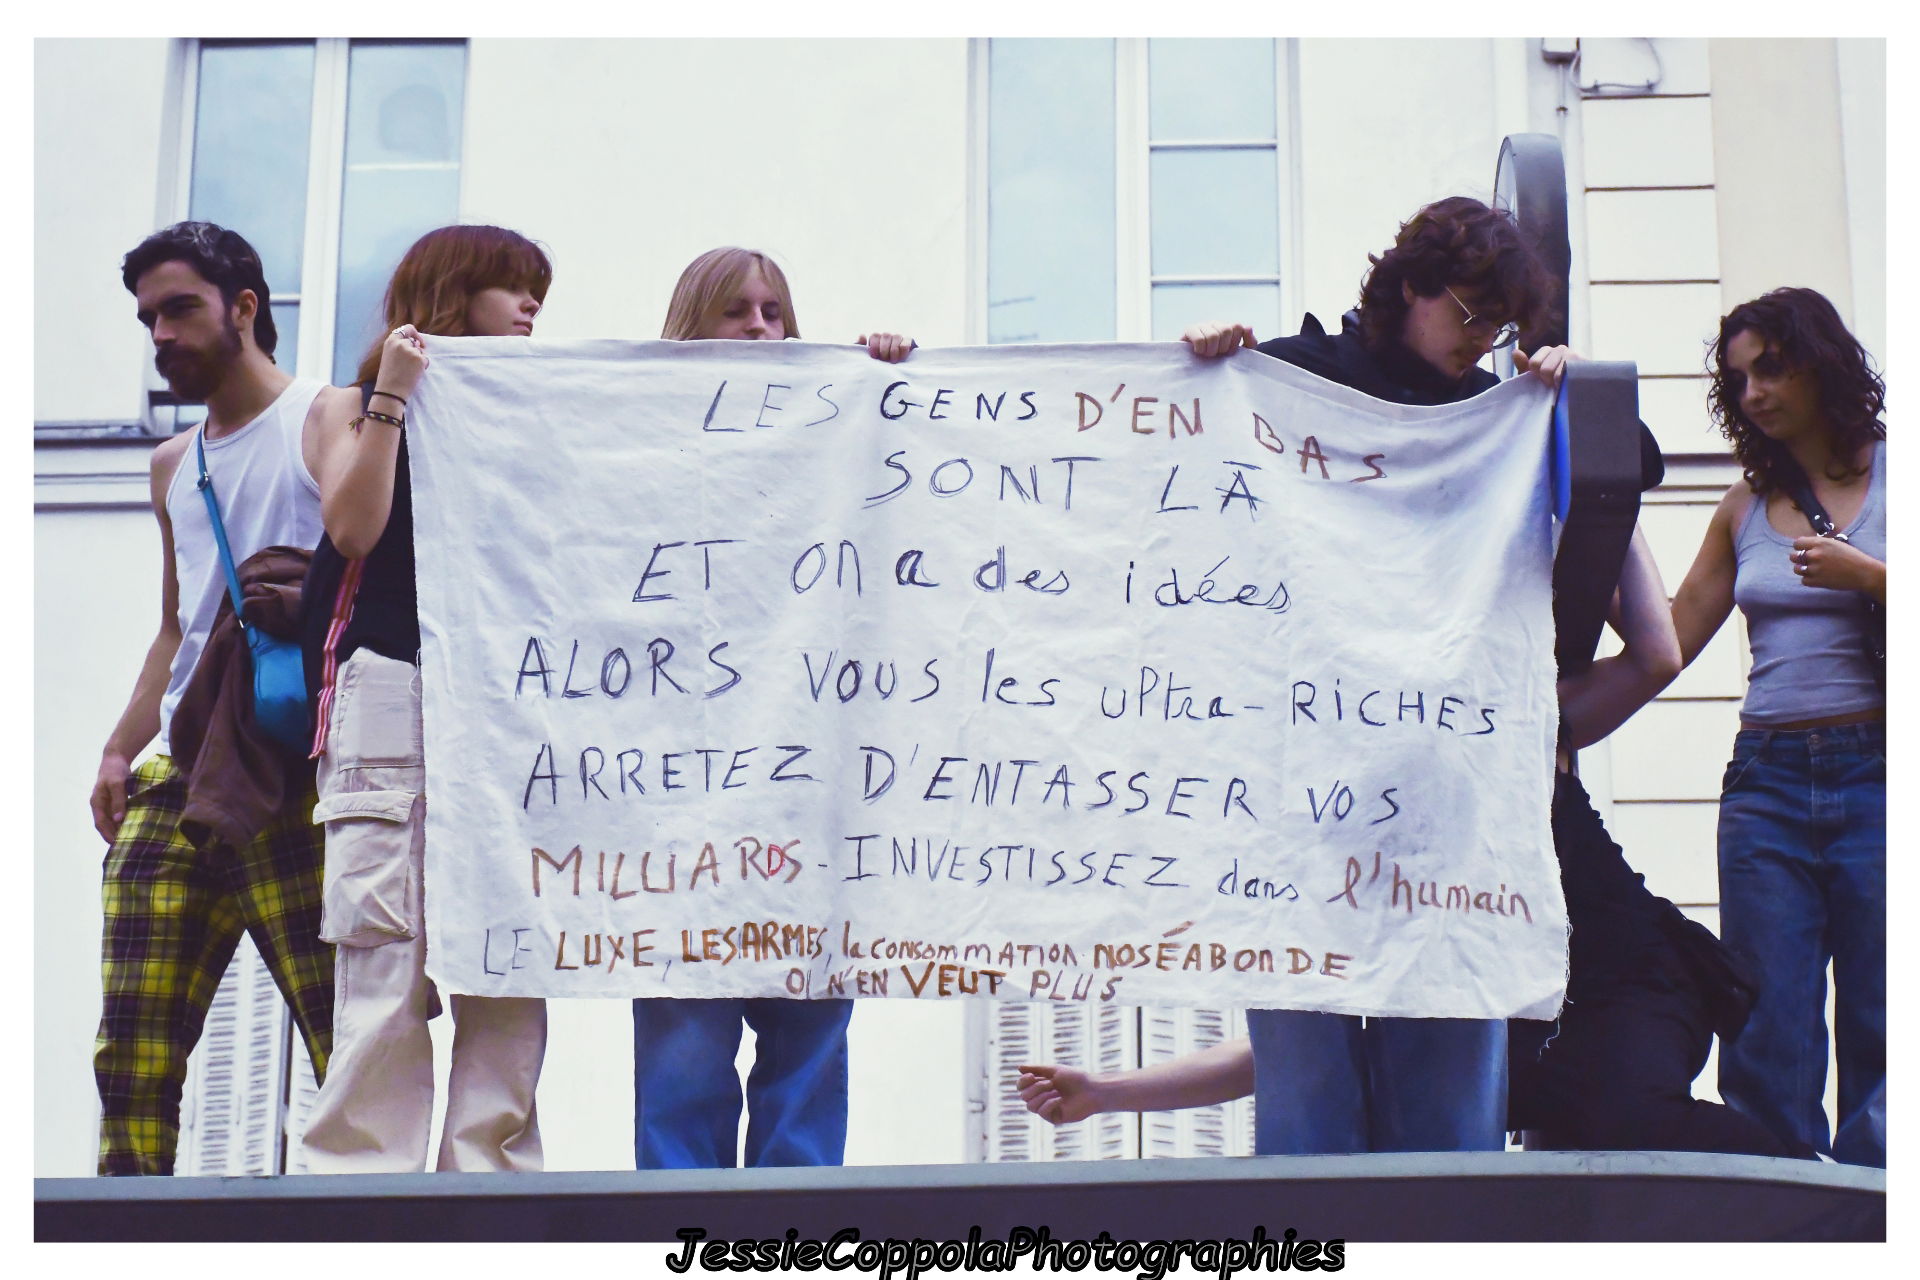 LES GENS D'EN BAS
SONT LÀ
ET on a des idées
ALORS VOUS les ultra-RiCHES
ARRETEZ D'ENTASSER VOS
MILLIARDS - INVESTISSEZ dans l'humain
LE LUXE, LES ARMES, la consommATION NOSÉABONDE
ON N'EN VEUT PLUS
JessieCoppolaPhotographies